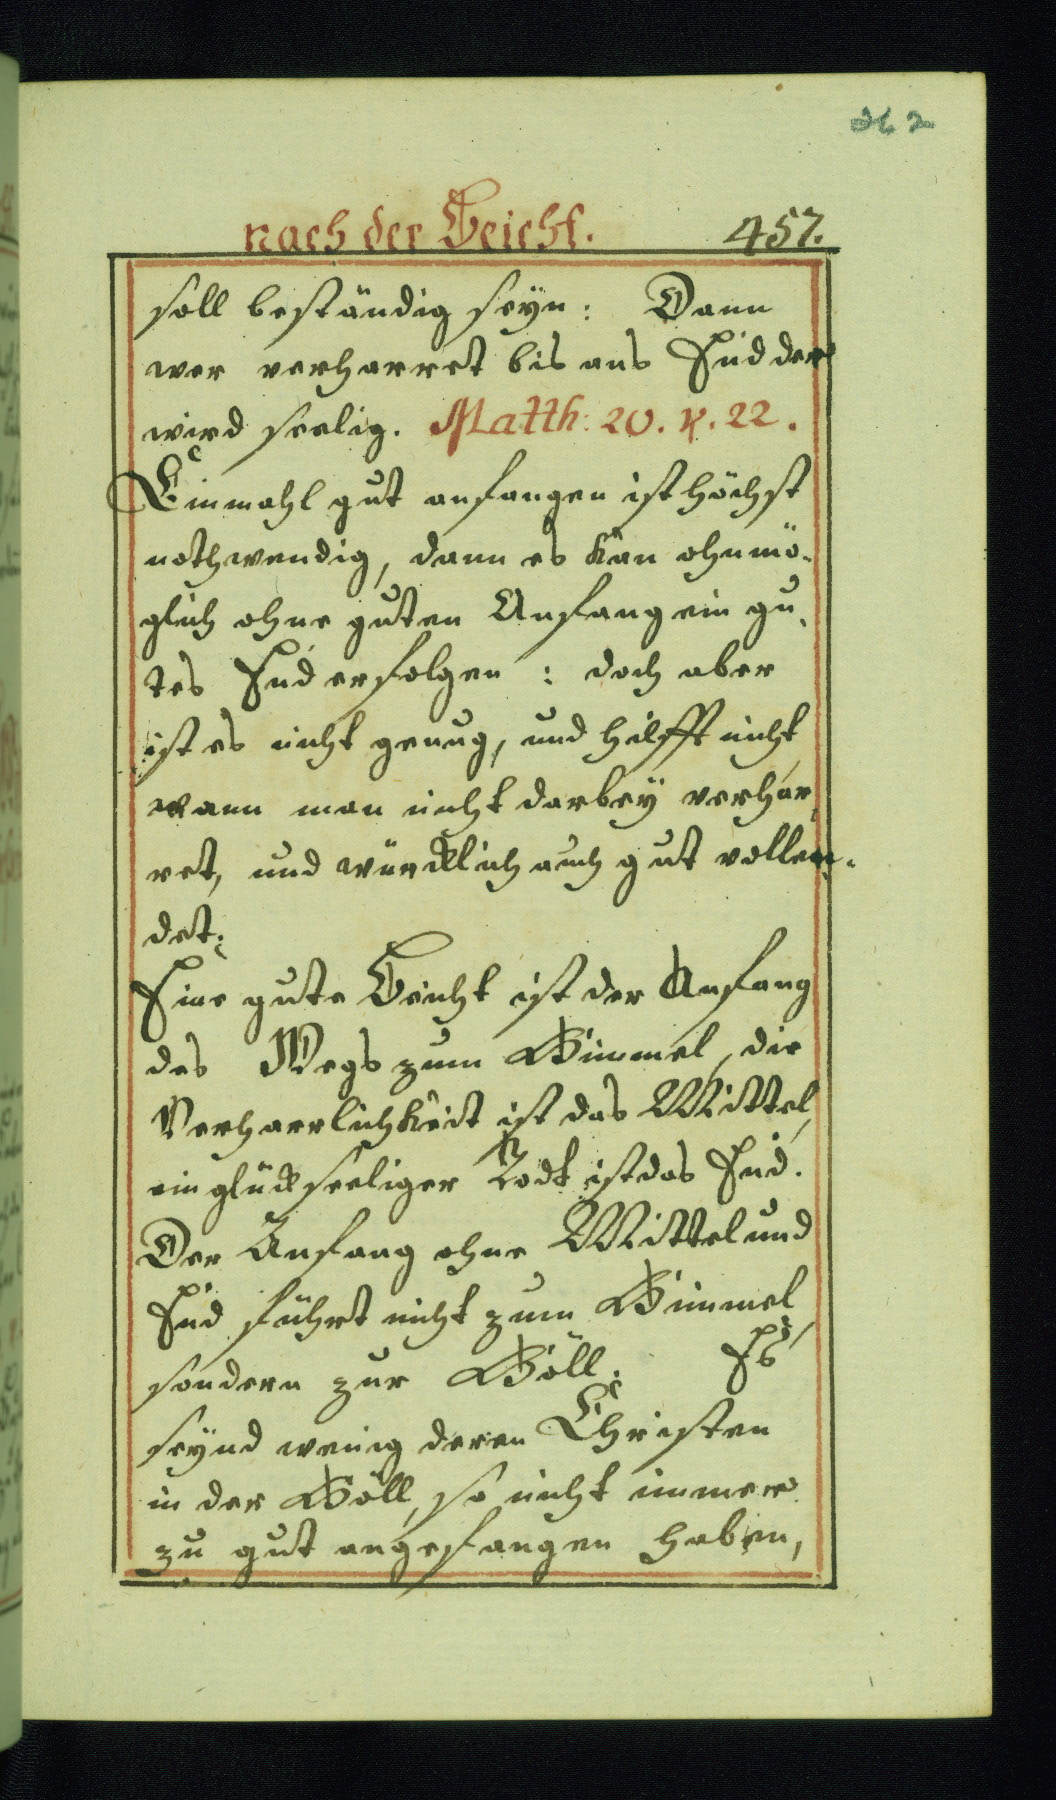 262
nach der Beicht. 457.
soll beständig seÿn: Dann
wer verharret bis ans End der
wird seelig. Matth: 20. v. 22.
Einmahl gut anfangen ist höchst
nothwendig, dann es kan ohnmö-
glich ohne guten Anfang ein gu-
tes End erfolgen: doch aber
ist es nicht genug, und hilfft nicht,
wann man nicht darbeÿ verhar-
ret, und würcklich auch gut vollen-
det.
Eine gute Beicht ist der Anfang
des Wegs zum Himmel, die
Verharrlichkeit ist das Mittel,
ein glückseeliger Todt ist das End.
Der Anfang ohne Mittel und
End führet nicht zum Himmel,
sondern zur Höll. Es
seÿnd wenig deren Christen
in der Höll, so nicht immer
zu gut angefangen haben,